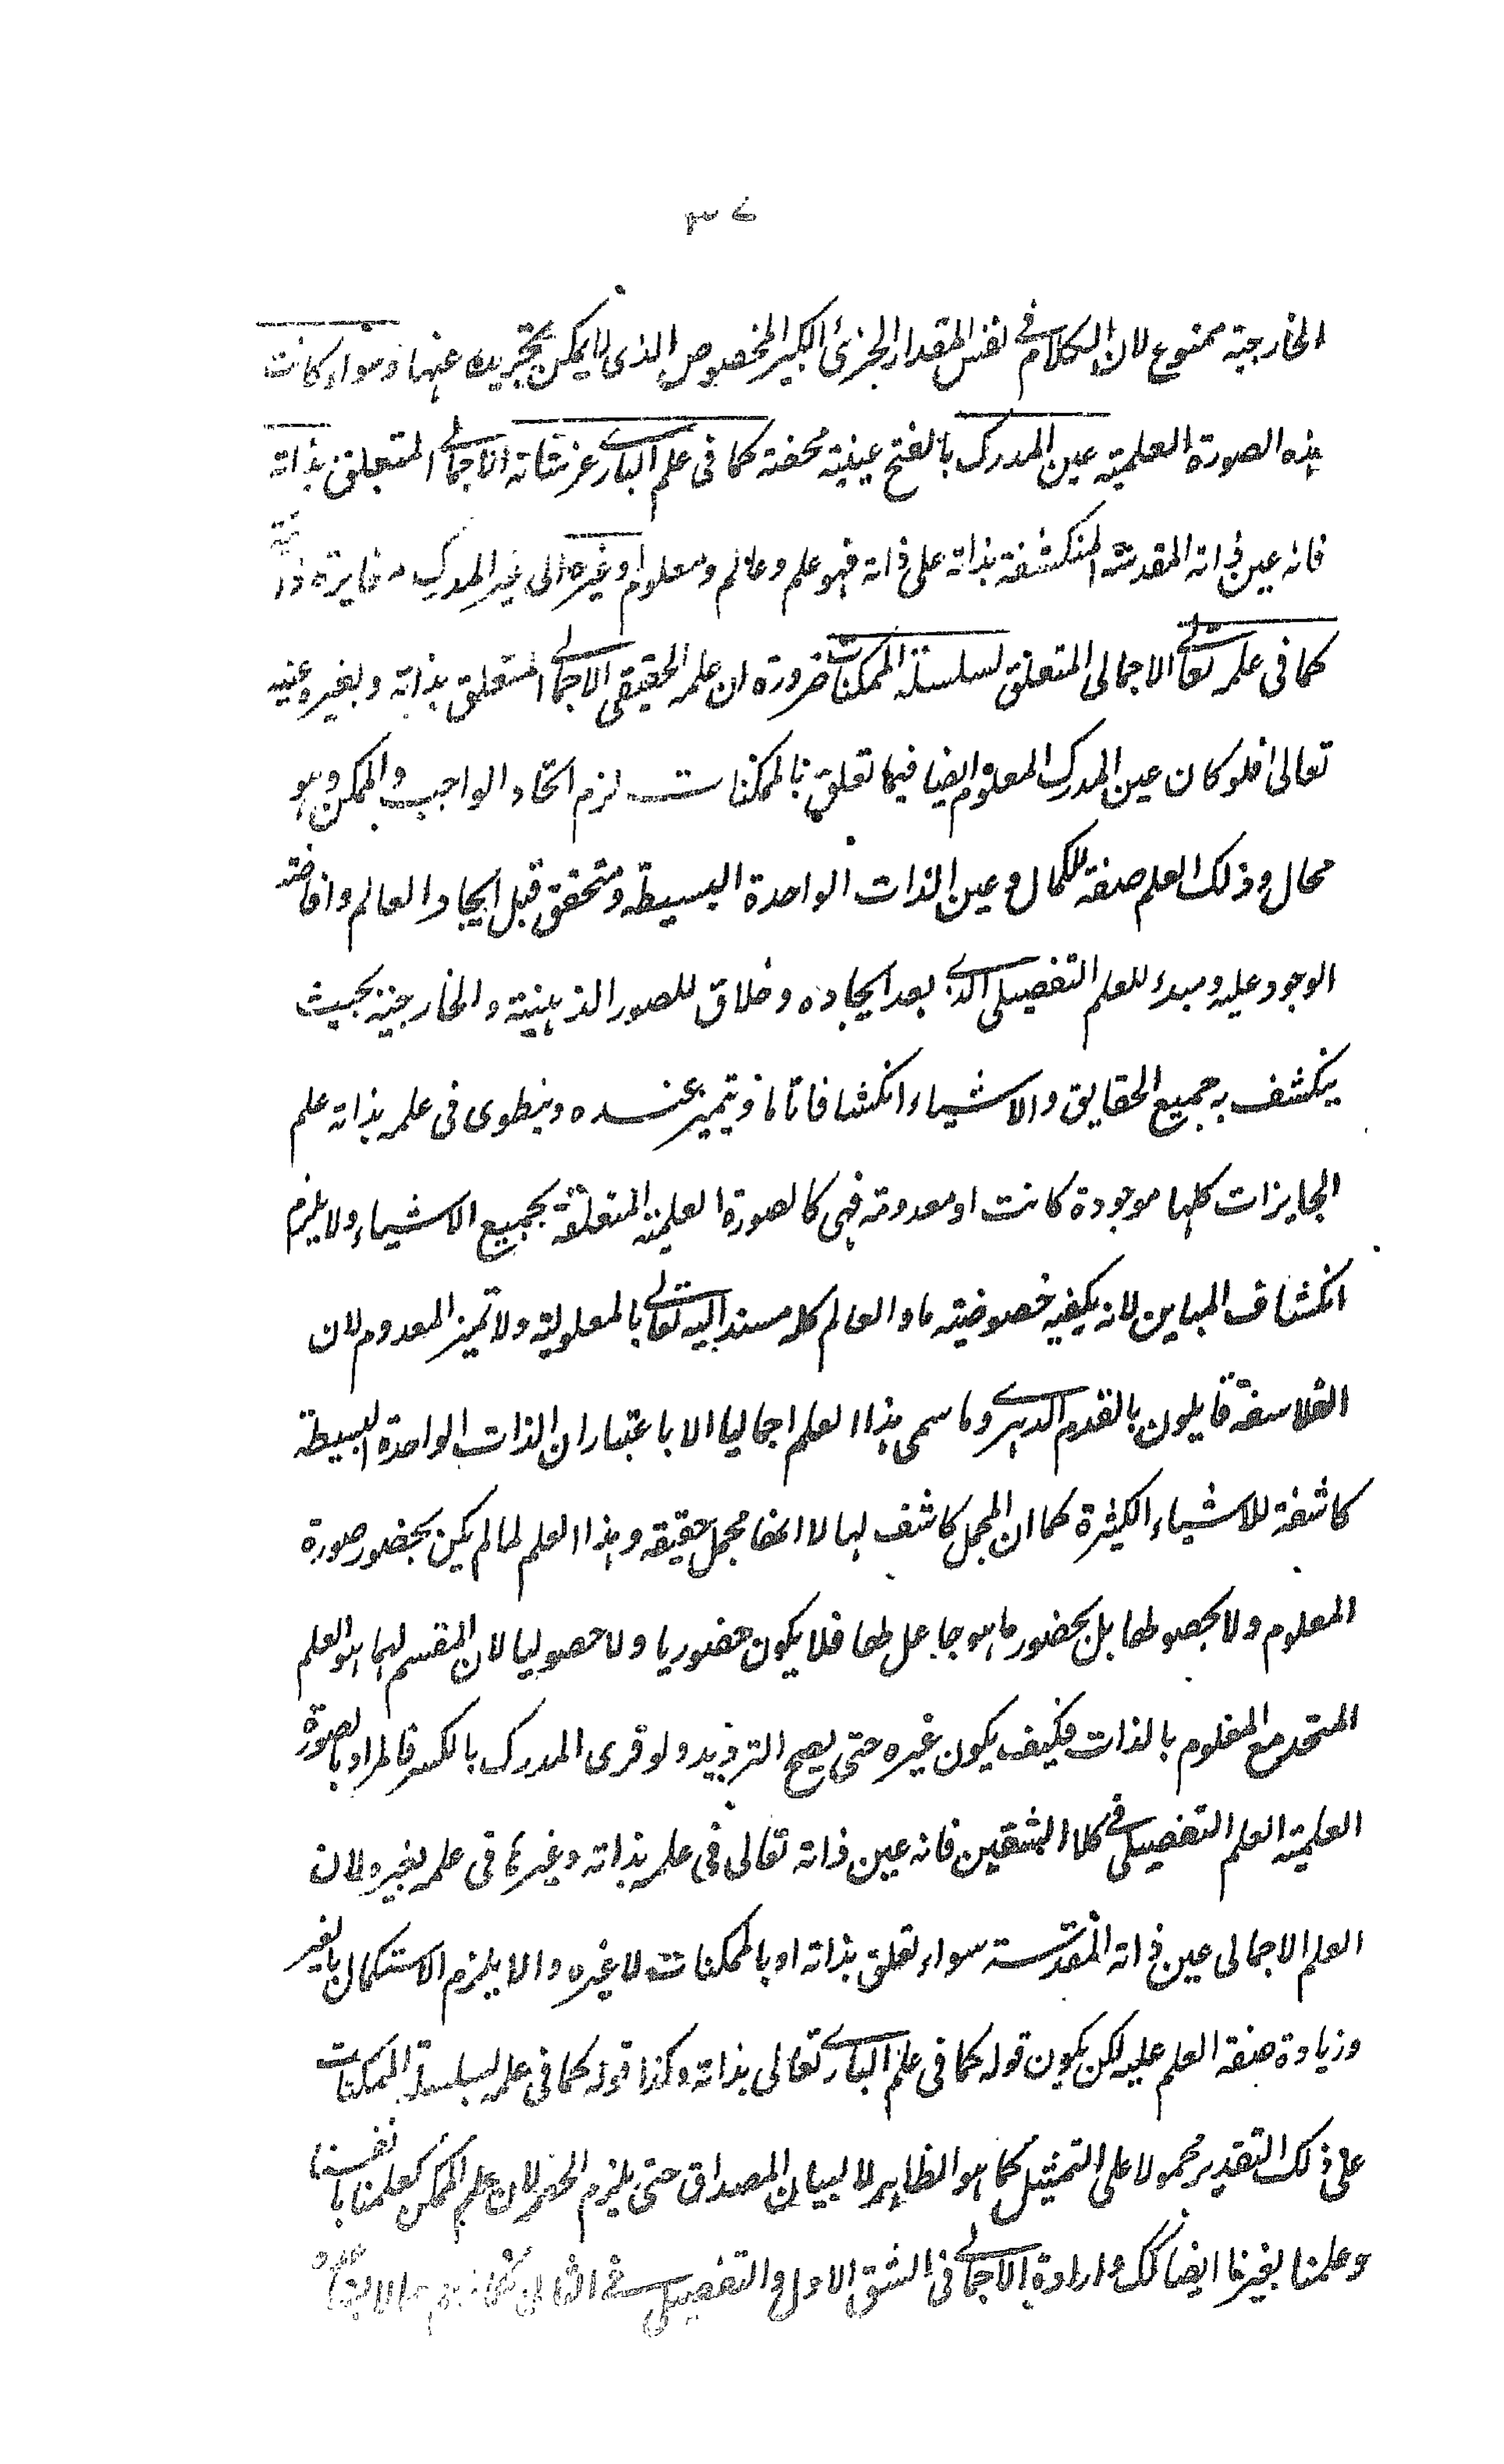 ٣٧
الخارجية ممنوع لان الكلام فى نفس المقدار الجزئ الكبير المخصوص الذى لا يمكن تجريده عنها وسواء كانت
هذه الصورة العلمية عين المدرك بالفتح عينية محضة كما فى علم البارى عز شانه الاجمالى المتعلق بذاته
فانه عين ذاته المقدسة المنكشفة بذاته على ذاته فهو علم وعالم ومعلوم او غيره اى غير المدرك مغايرة ذاتية
كما فى علمه تعالى الاجمالى المتعلق لسلسلة الممكنات ضرورة ان علمه الحقيقى الاجمالى المتعلق بذاته وبغيره عينه
تعالى فلو كان عين المدرك المعلوم ايضا فيما تعلق بالممكنات لزم اتحاد الواجب والممكن وهو
محال وذلك العلم صفة للكمال وعين الذات الواحدة البسيطة ومتحقق قبل ايجاد العالم وافاضة
الوجود عليه ومبدء للعلم التفصيلى الذى بعد ايجاده وخلاق للصور الذهنية والخارجية بحيث
ينكشف به جميع الحقايق والاشياء انكشافا تاما ويتميز عنده وينطوى فى علمه بذاته علم
الجايزات كلها موجودة كانت او معدومة فهى كالصورة العلمية المتعلقة بجميع الاشياء ولا يلزم
انكشاف المباين لانه يكفيه خصوصية ما والعالم كله مستند اليه تعالى بالمعلولية ولا تميز المعدوم لان
الفلاسفة قايلون بالقدم الدهرى وما سمى هذا العلم اجماليا الا باعتبار ان الذات الواحدة البسيطة
كاشفة للاشياء الكثيرة كما ان المجمل كاشف لها لا انها مجمل حقيقة وهذا العلم لما لم يكن بحضور صورة
المعلوم ولا بحصولها بل بحضور ما هو جاعل لها فلا يكون حضوريا ولا حصوليا لان المقسم لهما هو العلم
المتحد مع المعلوم بالذات فكيف يكون غيره حتى يصح الترديد ولو قرى المدرك بالكسر فالمراد بالصورة
العلمية العلم التفصيلى فى كلا الشقين فانه عين ذاته تعالى فى علمه بذاته وغيرها فى علمه بغيره لان
العلم الاجمالى عين ذاته المقدسة سواء تعلق بذاته او بالممكنات لا غيره والا يلزم الاستكمال بالغير
وزيادة صفة العلم عليه لكن يكون قوله كما فى علم البارى تعالى بذاته وكذا قوله كما فى علمه لسلسلة الممكنات
على ذلك التقدير محمولا على التمثيل كما هو الظاهر لا لبيان المصداق حتى يلزم الحصر لان علم الممكن كعلمنا بانفسنا
وعلمنا بغيرنا ايضا كك وارادة الاجمالى فى الشق الاول والتفصيلى فى الثانى